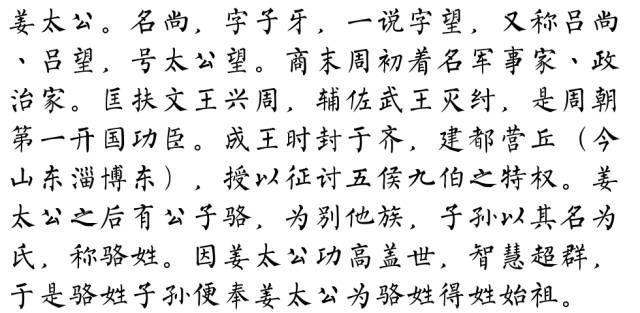 姜太公。名尚，字子牙，一说字望，又称吕尚
、吕望，号太公望。商末周初着名军事家、政
治家。匡扶文王兴周，辅佐武王灭纣，是周朝
第一开国功臣。成王时封于齐，建都营丘（今
山东淄博东），授以征讨五侯九伯之特权。姜
太公之后有公子骆，为别他族，子孙以其名为
氏，称骆姓。因姜太公功高盖世，智慧超群，
于是骆姓子孙便奉姜太公为骆姓得姓始祖。